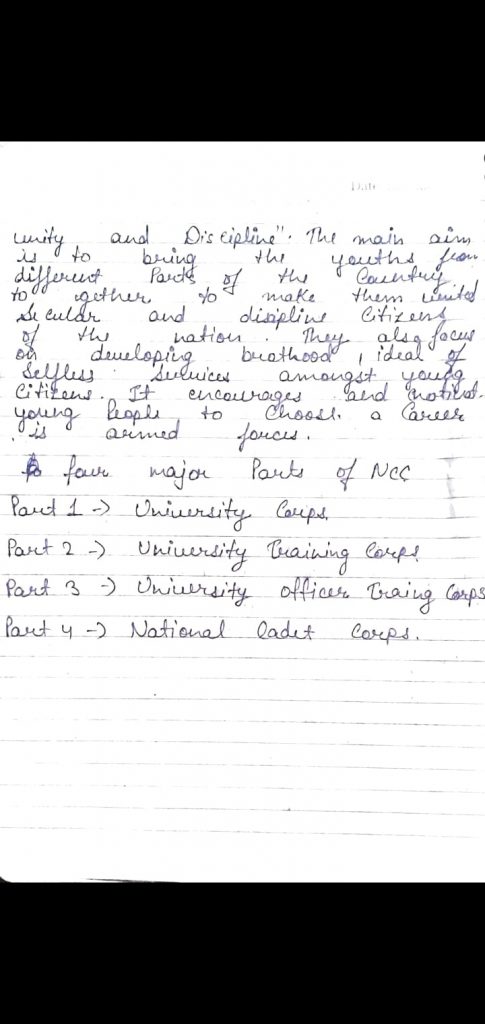 Date
unity and Discipline". The main aim
is to bring the youths from
different Parts of the Country.
to ogether to make them united
secular and disipline Citizens
of the nation. They also focus
on developing brathood, ideal of
Selfless Services amongst young
Citizens. It encourages and motivat-
young People to Choose. a Career
is armed forces.
four major Parts of NCC
Part 1 -> University Corps.
Part 2 -> University Training Corps.
Part 3 -> University officer Traing Corps
Part 4 -> National Cadet Corps.